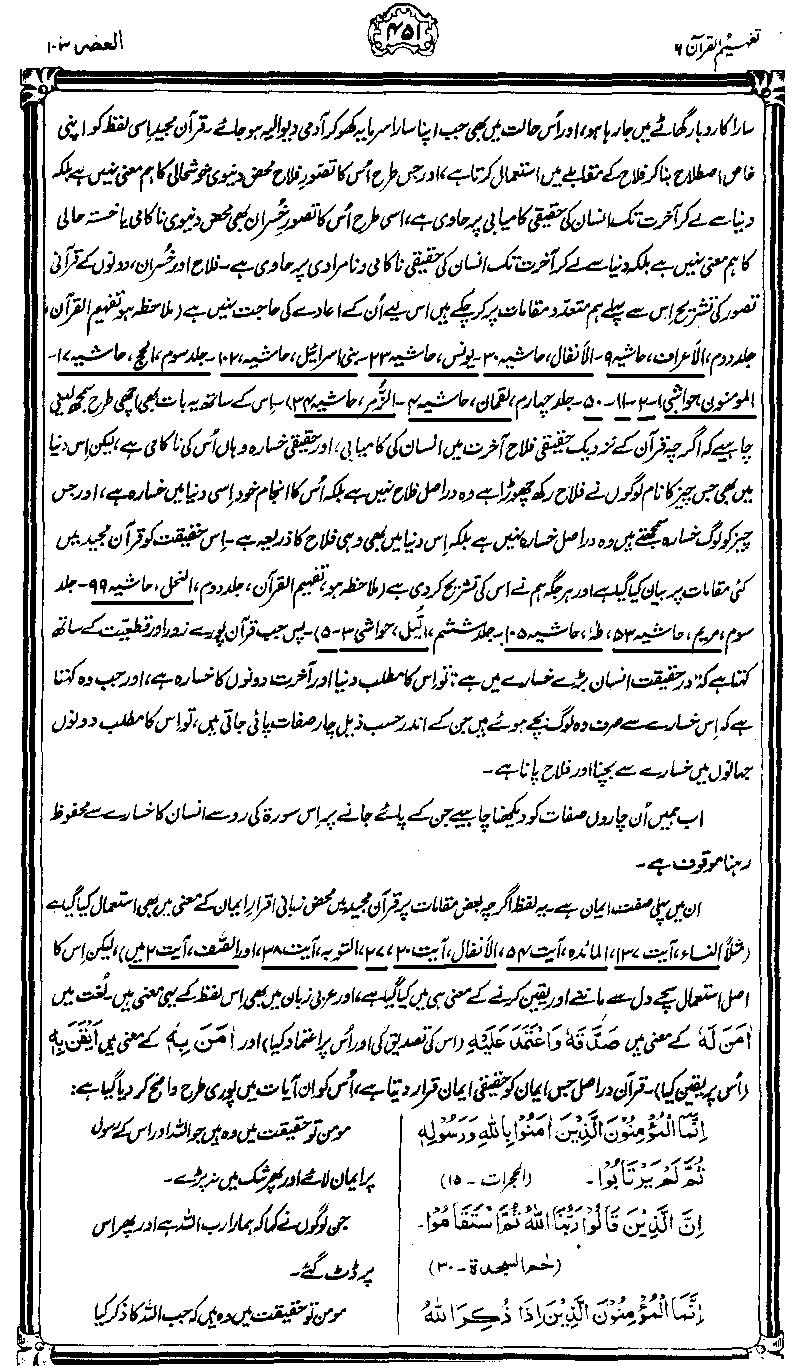 تفہیم القرآن ۶
۴۵۱
العصر ۱۰۳
سارا کاروبار گھاٹے میں جا رہا ہو، اور اُس حالت میں بھی جب اپنا سارا سرمایہ کھو کر آدمی دیوالیہ ہو جائے۔ قرآن مجید اِسی لفظ کو اپنی
خاص اصطلاح بنا کر فلاح کے مقابلے میں استعمال کرتا ہے، اور جس طرح اُس کا تصورِ فلاح محض دنیوی خوشحالی کا ہم معنی نہیں ہے بلکہ
دنیا سے لے کر آخرت تک انسان کی حقیقی کامیابی پر حاوی ہے، اسی طرح اُس کا تصورِ خُسران بھی محض دنیوی ناکامی یا خستہ حالی
کا ہم معنی نہیں ہے بلکہ دنیا سے لے کر آخرت تک انسان کی حقیقی ناکامی و نامرادی پر حاوی ہے۔ فلاح اور خُسران، دونوں کے قرآنی
تصور کی تشریح اِس سے پہلے ہم متعدد مقامات پر کر چکے ہیں اس لیے اُن کے اعادے کی حاجت نہیں ہے (ملاحظہ ہو تفہیم القرآن،
جلد دوم، الاعراف، حاشیہ ۹۔ الانفال، حاشیہ ۳۰۔ یونس، حاشیہ ۲۳۔ بنی اسرائیل، حاشیہ ۱۰۲۔ جلد سوم، الحج، حاشیہ ۱۷۔
المومنون، حواشی ۱۔۲۔۱۱۔۵۰۔ جلد چہارم، لقمان، حاشیہ ۴۔ الزُّمر، حاشیہ ۳۴)۔ اِس کے ساتھ یہ بات بھی اچھی طرح سمجھ لینی
چاہیے کہ اگرچہ قرآن کے نزدیک حقیقی فلاح آخرت میں انسان کی کامیابی، اور حقیقی خسارہ وہاں اُس کی ناکامی ہے، لیکن اِس دنیا
میں بھی جس چیز کا نام لوگوں نے فلاح رکھ چھوڑا ہے وہ دراصل فلاح نہیں ہے بلکہ اُس کا انجام خود اِسی دنیا میں خسارہ ہے، اور جس
چیز کو لوگ خسارہ سمجھتے ہیں وہ دراصل خسارہ نہیں ہے بلکہ اِس دنیا میں بھی وہی فلاح کا ذریعہ ہے۔ اِس حقیقت کو قرآن مجید میں
کئی مقامات پر بیان کیا گیا ہے اور ہر جگہ ہم نے اس کی تشریح کر دی ہے (ملاحظہ ہو تفہیم القرآن، جلد دوم، النحل، حاشیہ ۹۹۔ جلد
سوم، مریم، حاشیہ ۵۳، طٰہٰ، حاشیہ ۱۰۵۔ جلد ششم، الّیل، حواشی ۳۔۵)۔ پس جب قرآن پورے زور اور قطعیت کے ساتھ
کہتا ہے کہ "درحقیقت انسان بڑے خسارے میں ہے" تو اس کا مطلب دنیا اور آخرت دونوں کا خسارہ ہے، اور جب وہ کہتا
ہے کہ اِس خسارے سے صرف وہ لوگ بچے ہوئے ہیں جن کے اندر حسب ذیل چار صفات پائی جاتی ہیں، تو اِس کا مطلب دونوں
جہانوں میں خسارے سے بچنا اور فلاح پانا ہے۔
اب ہمیں اُن چاروں صفات کو دیکھنا چاہیے جن کے پائے جانے پر اِس سورۃ کی رو سے انسان کا خسارے سے محفوظ
رہنا موقوف ہے۔
ان میں پہلی صفت ایمان ہے۔ یہ لفظ اگرچہ بعض مقامات پر قرآن مجید میں محض زبانی اقرارِ ایمان کے معنی میں بھی استعمال کیا گیا ہے
(مثلاً النساء، آیت ۱۳۷، المائدہ، آیت ۵۴، الانفال، آیت ۲۰، ۲۷، التوبہ، آیت ۳۸، اور الصّف، آیت ۲ میں)، لیکن اِس کا
اصل استعمال سچے دل سے ماننے اور یقین کرنے کے معنی ہی میں کیا گیا ہے، اور عربی زبان میں بھی اِس لفظ کے یہی معنی ہیں۔ لُغت میں
اٰمَنَ لَہٗ کے معنی ہیں صَدَّقَہٗ وَاعْتَمَدَ عَلَیْہِ (اس کی تصدیق کی اور اُس پر اعتماد کیا) اور اٰمَنَ بِہٖ کے معنی ہیں اَیْقَنَ بِہٖ
(اُس پر یقین کیا)۔ قرآن دراصل جس ایمان کو حقیقی ایمان قرار دیتا ہے، اُس کو ان آیات میں پوری طرح واضح کر دیا گیا ہے:
اِنَّمَا الْمُؤْمِنُوْنَ الَّذِیْنَ اٰمَنُوْا بِاللّٰہِ وَرَسُوْلِہٖ
ثُمَّ لَمْ یَرْتَابُوْا۔ (الحجرات - ۱۵)
اِنَّ الَّذِیْنَ قَالُوْا رَبُّنَا اللّٰہُ ثُمَّ اسْتَقَامُوْا۔
(حٰم السجدۃ - ۳۰)
اِنَّمَا الْمُؤْمِنُوْنَ الَّذِیْنَ اِذَا ذُکِرَ اللّٰہُ
مومن تو حقیقت میں وہ ہیں جو اللہ اور اس کے رسول
پر ایمان لائے اور پھر شک میں نہ پڑے۔
جن لوگوں نے کہا کہ ہمارا رب اللہ ہے اور پھر اس
پر ڈٹ گئے۔
مومن تو حقیقت میں وہ ہیں کہ جب اللہ کا ذکر کیا